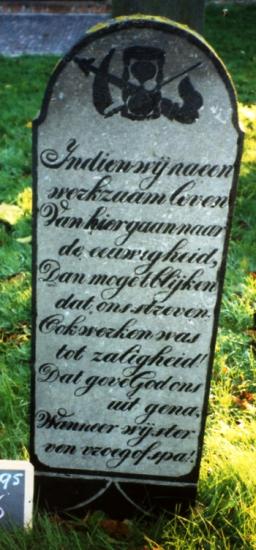 Indien wij na een
werkzaam leven
Van hier gaan naar
de, eeuwigheid,
Dan mogel blijken
dat, ons streven.
Ook werken was
tot zaligheid!
Dat geve God ons
uit gena,
Wanneer wij ster
ven vroeg of spa!
95